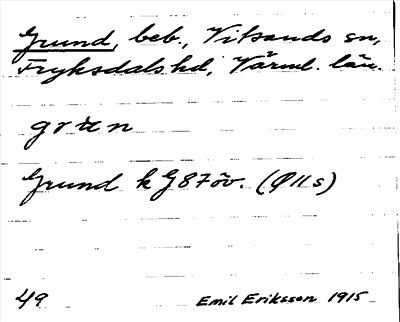 Grund, beb., Vitsands sn,
Fryksdals hd, Värml. län.
grun
Grund k G 87öv. (Ø 11 s)
49 Emil Eriksson 1915